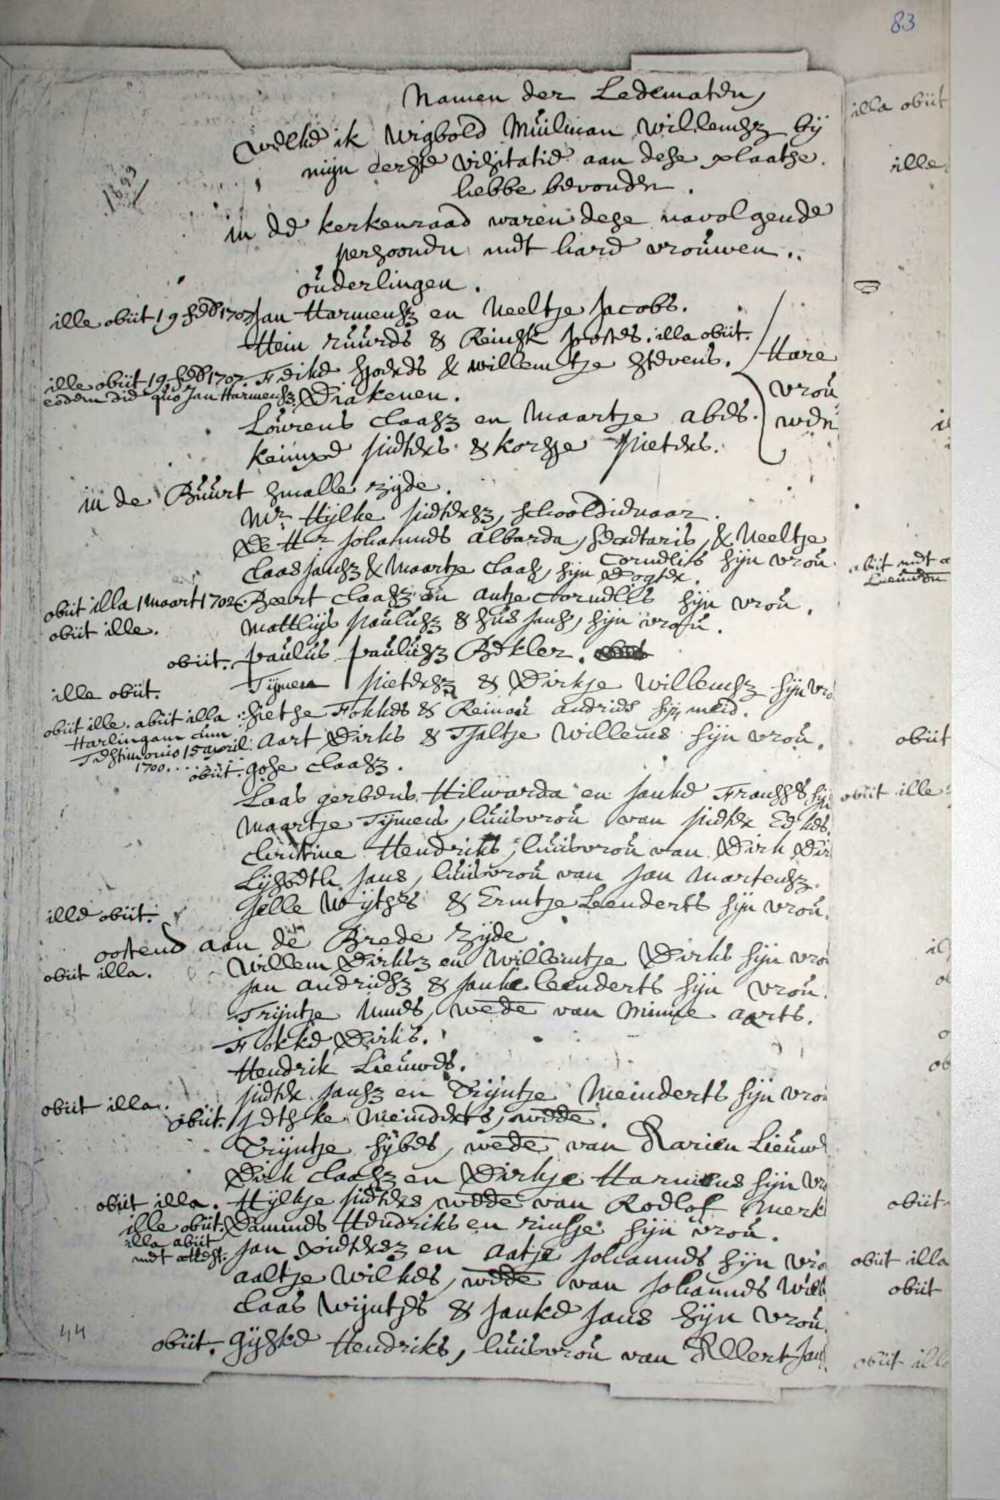 83
Namen der Ledematen,
Welke ik Wigbold Muilman Willemsz bij
mijn eerste visitatie aan dese plaatse.
hebbe bevonden.
1699
in de kerkenraad waren dese navolgende
persoonen met haare vrouwen.
ouderlingen.
ille obiit 19 feb 1707 Jan Harmensz en Neeltje Jacobs.
Hein ruurds & Reinsk postes. illa obiit.
ille obiit 19 feb 1707. Feike sjoerds & willemtje stevens. Hare
eodem die quo Jan Harmensz Diakenen. vrou
Lourens Claasz en Maartje abes. wen
keimpe pieters & korsje Pieters.
in de Buurt smalle zijde.
Mr. Hylke pietersz, schooldienaar.
De Hr Johannes albarda, secretaris, & Neeltje
Cornelis sijn vrou
Claas Jansz & Maartje Claas, sijn dogter.
obiit illa 1 maart 1702. Beert Claasz en antje Cornelis sijn vrou.
obiit ille. Matthijs paulusz & Jans, sijn vrou.
obiit. paulus paulusz Bekler.
ille obiit. Tijmen pietersz & Dirkje Willemsz sijn vro
obiit ille. abiit illa sietse Fokkes & Reinou andries sijn meid.
Harlingam cum
Testimonio 15 april Aart Dirks & Tjaltje Willems sijn vrou.
1700.....
obiit. gose claasz.
Laas gerbens Hilwarda en Janke Fransses sij
Maartje Tijmens, huisvrou van pieter Ed kes.
christine Hendriks, huisvrou van Dirk Dir
Lijsbeth Jans, huisvrou van Jan Martensz.
ille obiit. Jelle Wytses & Ermtje Leenderts sijn vrou.
oostend aan de Brede zijde
obiit illa. Willem Dirksz en Willemtje Dirks sijn vrou
Jan andriesz & Janke leenderts sijn vrou.
Trijntje wede van Minne aarts.
Fokke Dirks.
Hendrik Lieuwes.
obiit illa. pieter jansz en Trijntje Meinderts sijn vrou
obiit. Jetske Meinderts, wede.
Trijntje sijbes, wede van Rarien Lieuw
Dirk Claasz en Dirkje Harmens sijn vr
obiit illa. Hijlkje pieters, wede van Roelof Merk
ille obiit Hendriks en rinsje sijn vrou.
illa abiit
met attest. Jan pietersz en aatje Johannes sijn vro
aaltje Wilkes, wede van Johannes Will
Claas Wijntjes & Janke Jans sijn vrou
44
obiit. Gijske Hendriks, huisvrou van Allert Jan
illa obiit
ille
abiit met a
Leeuwen
obiit
obiit ille
obiit
obiit illa
obiit
obiit ille